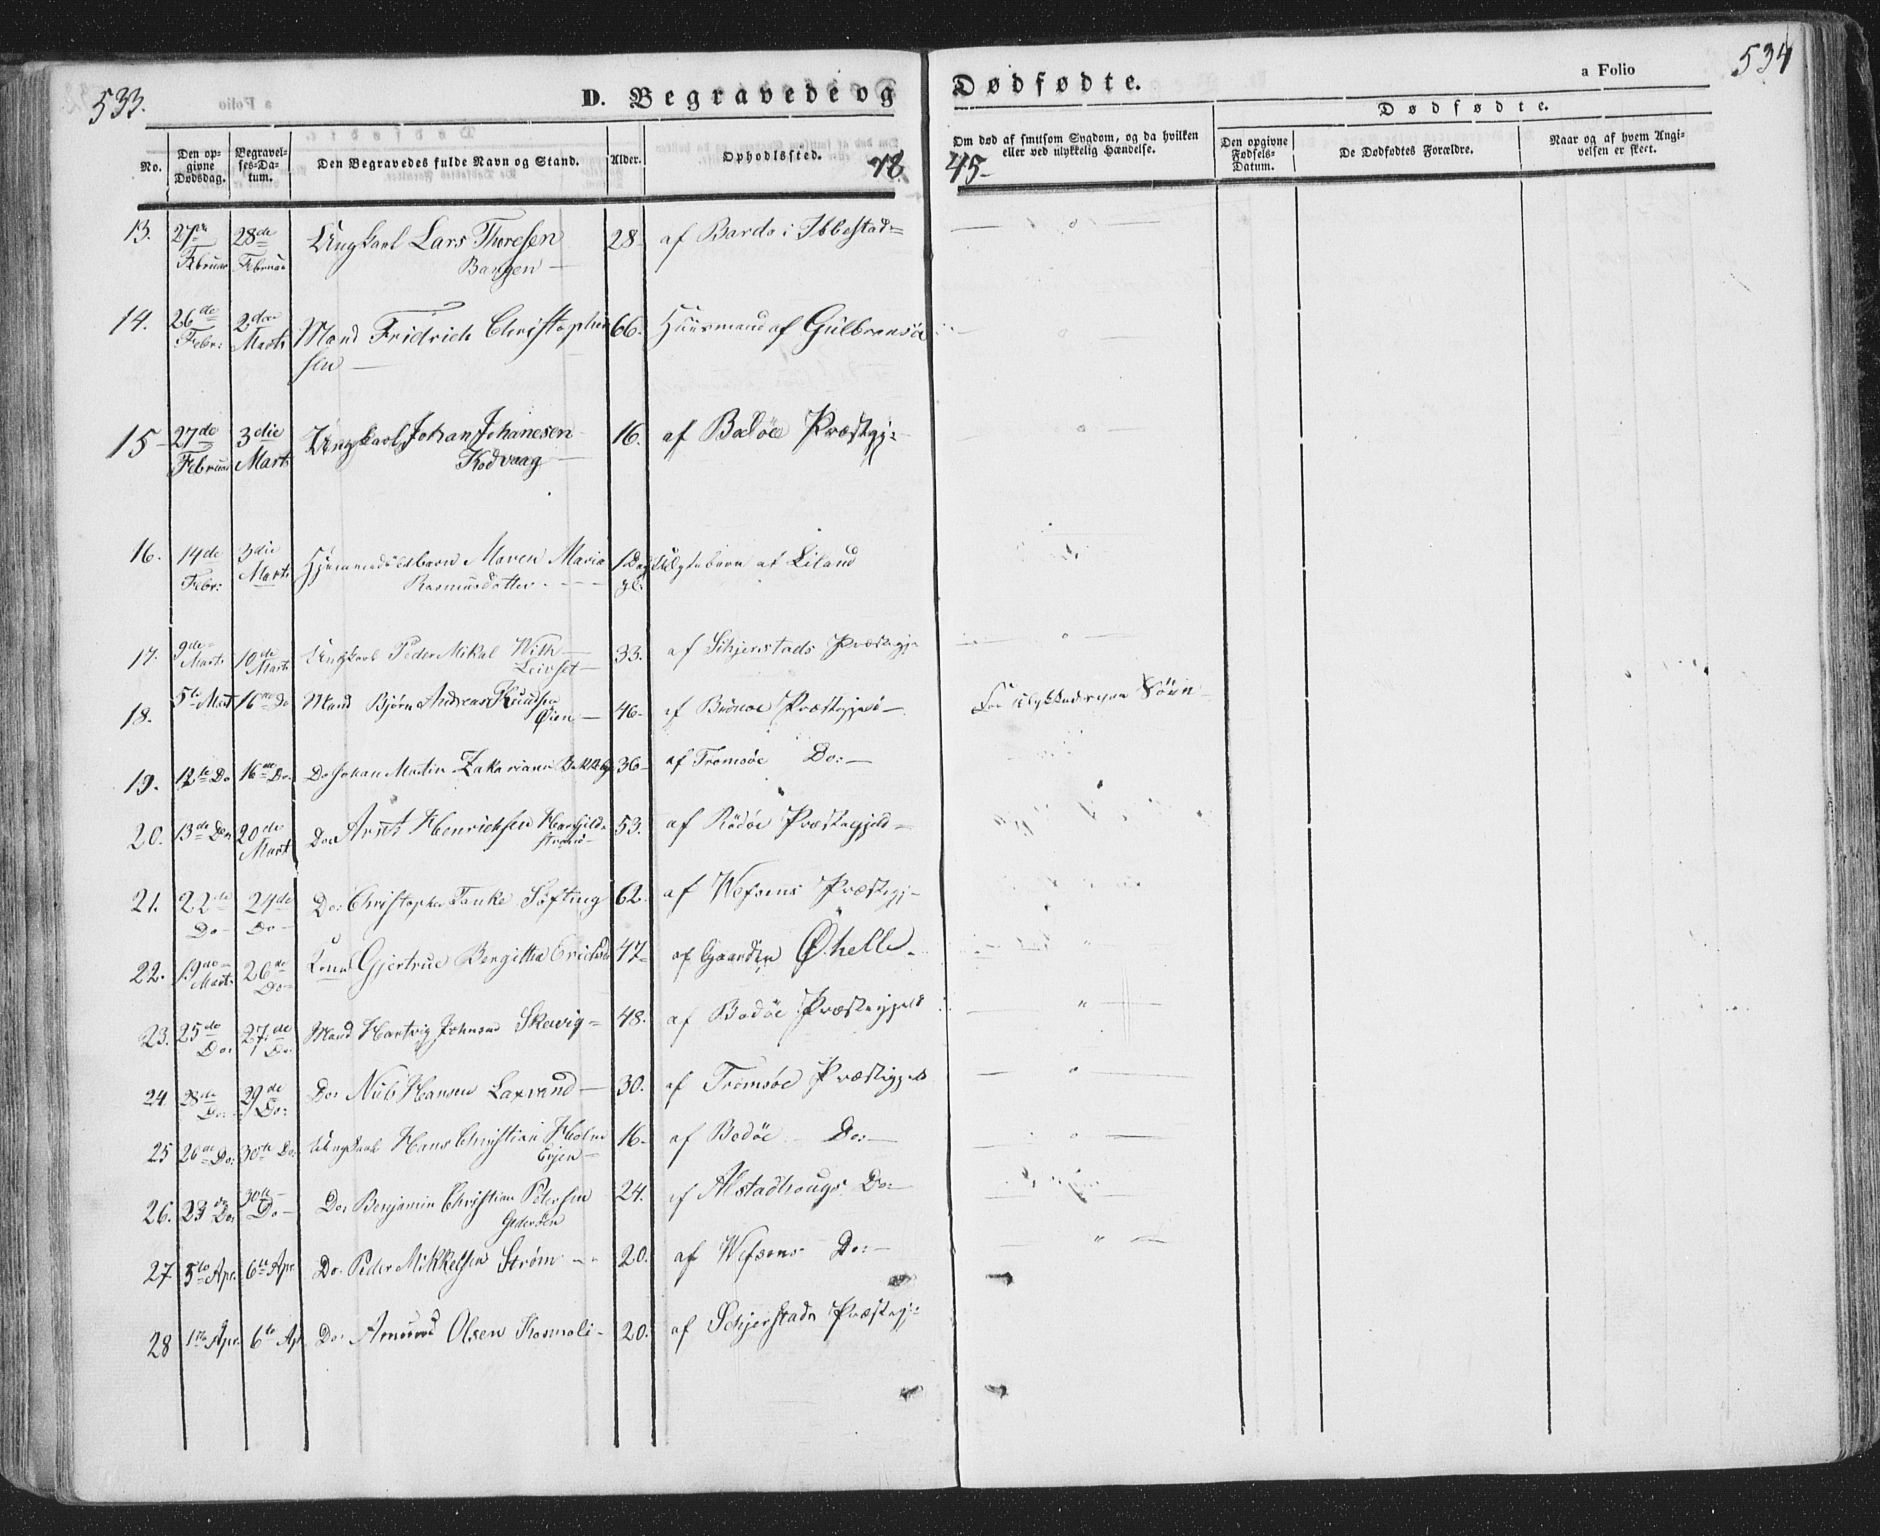 533.
D. Begravede og
Dødfødte.
a Folio
534
No.
Den opgivne Dødsdag.
Begravelses-Datum.
Den Begravedes fulde Navn og Stand.
Alder.
Opholdssted.
18
45-
Om død af smitsom Sygdom, og da hvilken eller ved ulykkelig Hændelse.
Dødfødte.
Den opgivne Fødsels-Datum.
De Dødfødtes Forældre.
Naar og af hvem Angivelsen er skeet.
13. 27de 28de Ungkarl Lars Thoresen 28- af Bardo i Ibbestad
Februar Februar
14. 26de 2den Mand Fridrich Christopher 66. Huusmand af Gulbransøe
Febr: Marts sen
15- 27de 3die Ungkarl Johan Johanesen 16. af Bodøe Præstegj:
Februar Marts Kodvaag
16. 14de 3die Maren Maria 1 Dag af Liland
Febr: Marts Rasmusdatter gl.
17. 9de Marts 10de Marts Ungkarl Peder Mikal 33. af Schjerstads Præstegj-
Leivset
18. 5te Mart 16de Do Mand Bjørn Andreas 46- af Præstegjeld
Øien
19. 12te Do 16de Do. Do Johan Martin 36- af Tromsøe Do:
20. 13de Do: 20de Do: Arnt Henriksen 53. af Rödöe Præstegjeld
Mart
21. 22de 24de Do: Christopher Tanke Søfting 62. af Wefsens Præstegj-
Do- Do-
22. 19de 26de Kone Gjertrue Bergitha 47- af Gaarden Øhelle.
Marts Do-
23. 25de 27de Mand Hartvig Johnsen 48. af Bodöe Præstegjeld
Do: Do:
24 28de 29de Do: Nils Hansen 30. af Tromsøe Præstegjeld
Do: Do:
25 26de Do: 30te Do. Ungkarl Hans Christian Holm 16- af Bodöe Do:
26. 23de Do: 30te Do- Do: Benjamin Christian Petersen 24. af Alstadhougs Do:
27 5te Apr. 6te Apr Do. Peder Mikkelsen Strøm 20. af Wefsens Do:
28 1ste Apr. 6te Ap Do: Olsen 20. af Schjerstads Præstegj: